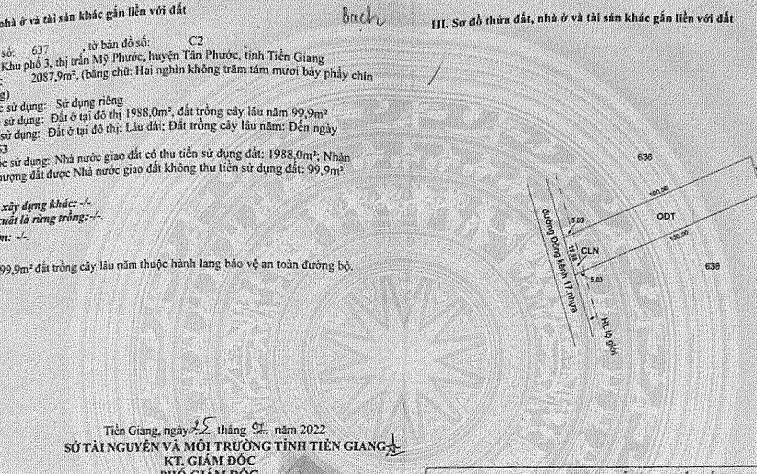 nhà ở và tài sản khác gắn liền với đất
Bạch
số: 637 , tờ bản đồ số: C2
Khu phố 3, thị trấn Mỹ Phước, huyện Tân Phước, tỉnh Tiền Giang
2087,9m², (bằng chữ: Hai nghìn không trăm tám mươi bảy phẩy chín
g)
c sử dụng: Sử dụng riêng
sử dụng: Đất ở tại đô thị 1988,0m², đất trồng cây lâu năm 99,9m²
sử dụng: Đất ở tại đô thị: Lâu dài; Đất trồng cây lâu năm: Đến ngày
63
ốc sử dụng: Nhà nước giao đất có thu tiền sử dụng đất: 1988,0m²; Nhân
hượng đất được Nhà nước giao đất không thu tiền sử dụng đất: 99,9m²
xây dựng khác: -/-
xuất là rừng trồng:-/-.
m: -/-
99,9m² đất trồng cây lâu năm thuộc hành lang bảo vệ an toàn đường bộ.
Tiền Giang, ngày 25 tháng năm 2022
SỞ TÀI NGUYÊN VÀ MÔI TRƯỜNG TỈNH TIỀN GIANG
KT. GIÁM ĐỐC
PHÓ GIÁM ĐỐC
III. Sơ đồ thửa đất, nhà ở và tài sản khác gắn liền với đất
636
100.00
ODT
5.03
100.00
CLN
638
5.03
đường Đông kênh 17,nhựa
HL lộ giới